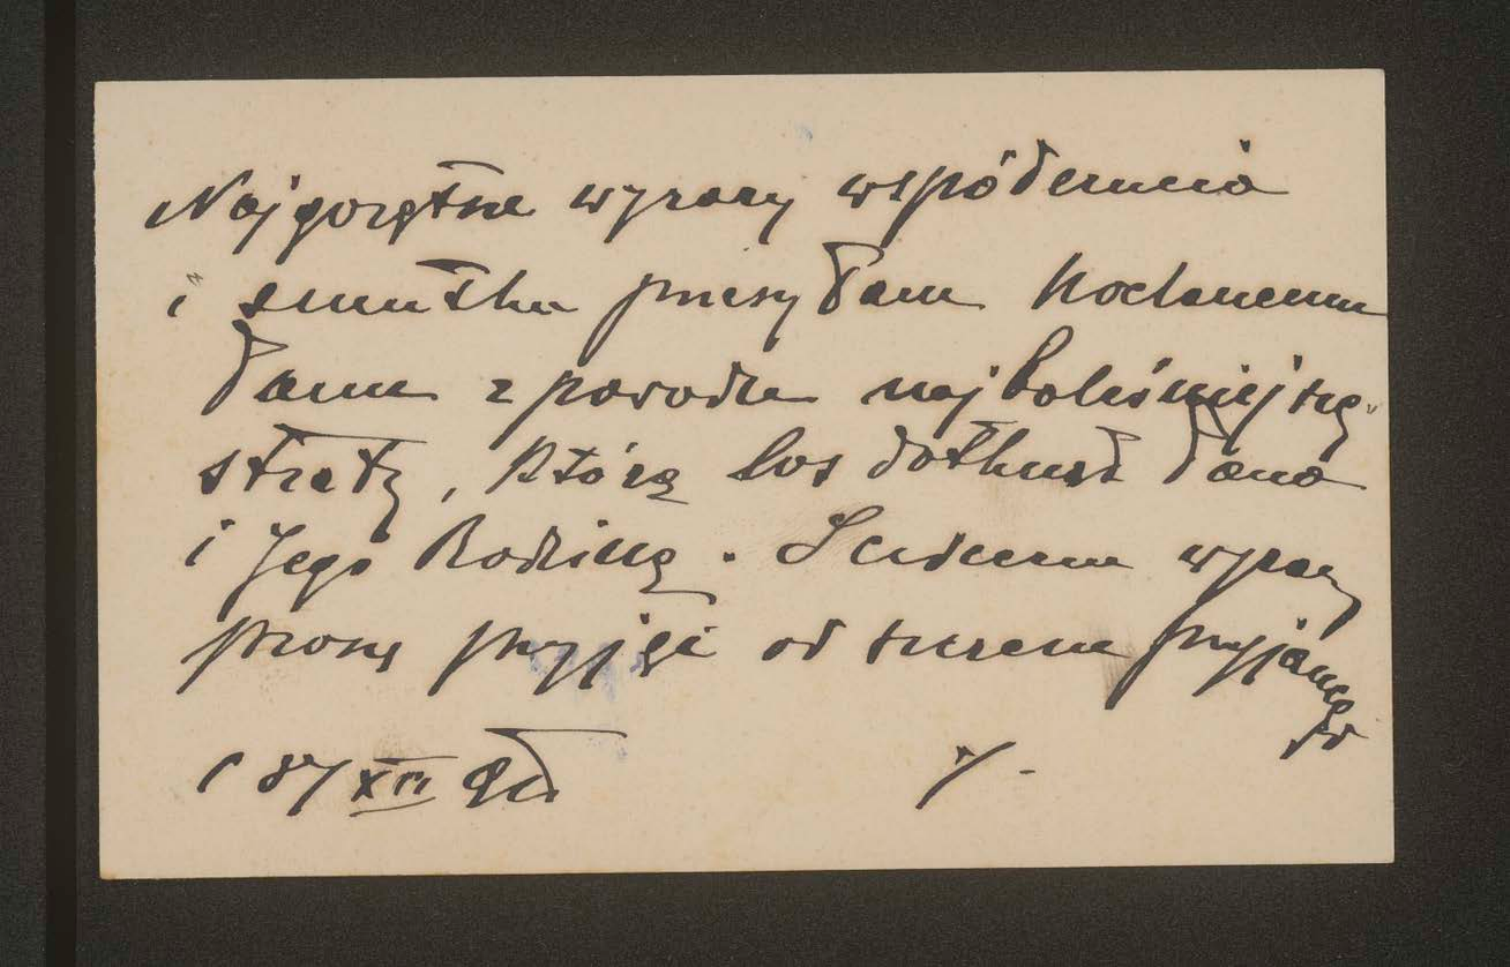 Najgorętsze wyrazy współczucia
i smutku przesyłam Kochanemu
Panu z powodu najboleśniejszej
straty, którą los dotknął Pana
i Jego Rodzinę. Serdeczne wyrazy
proszę przyjąć od szczerze przyjaznego
18/XII